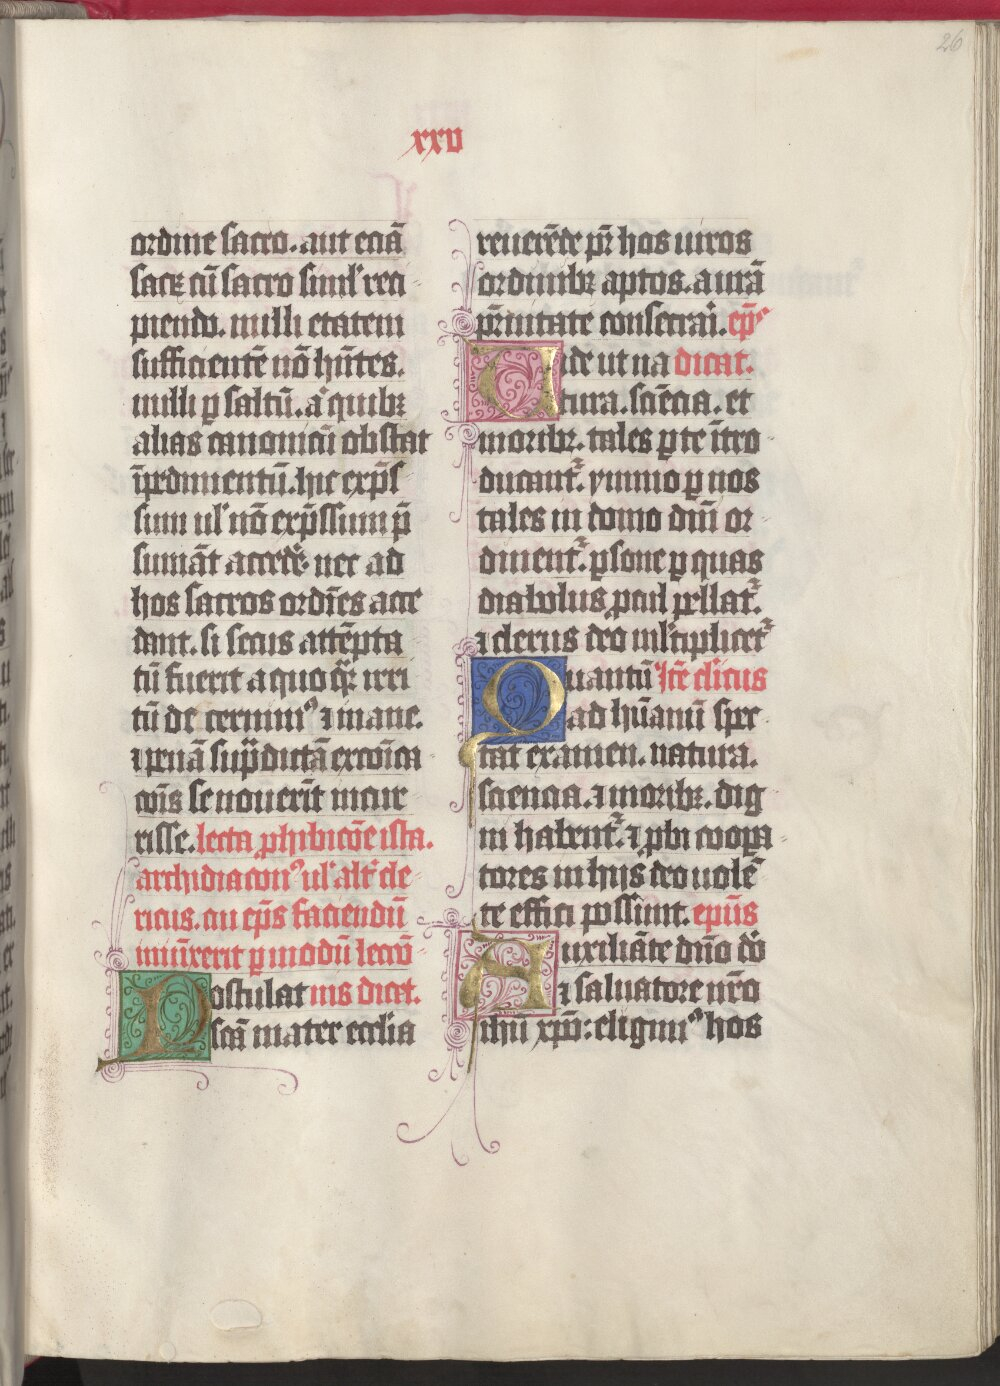 26
xxv
ordine sacro. aut eciā
sacꝝ cū sacro siml' reci
piendo. nulli etatem
sufficientē nō hn̄tes.
nulli ꝑ saltū. a' quibꝫ
alias canonicū obstat
īpedimentū. hic exp̄s
sum ul' nō exp̄ssum p̄
sumāt accede᷑. nec ad
hos sacros ordīes acce
dant. si secus attēpta
tū fuerit a quoqꝫ irri
tū de cernimꝰ ⁊ inane.
⁊ penā sup̄dictā excōica
cōis se nouerīt incur
risse. lecta ꝓhibicōe ista.
archidiaconꝰ ul' alt' cle
ricus. cū ep̄s faciendū
iniūxerit ꝑ modū lectō
Postulat nis dicat.
scā mater ecclia
reuerēde pr̄ hos uiros
ordinibꝫ aptos. a urā
pr̄nitate consecrai. ep̄s
Uide ut na dicat.
tura. sciēcia. et
moribꝫ. tales ꝑ te ītro
ducant᷑. ymmo ꝑ nos
tales in domo dn̄i or
dinent᷑. ꝑsone ꝑ quas
diabolus ꝓcul pellat᷑.
⁊ clerus deo ml'tiplicet᷑
Quantū Itē clicus
ad hūanū spe
tat examen. natura.
sciencia. ⁊ moribꝫ. dig
ni habent᷑. ⁊ ꝓbi coopa
tores in hijs deo uolē
te effici possunt. epūs
Auxiliāte dn̄o dō
⁊ saluatore nr̄o
ihū xp̄o: eligimꝰ hos